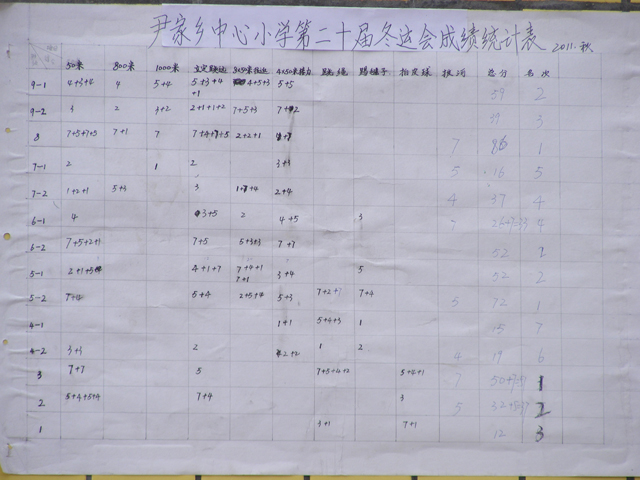 尹家乡中心小学第二十届冬运会成绩统计表 2011.秋
50米 800米 1000米 立定跳远 4x50米接力 跳绳 踢毽子 拍皮球 拔河 总分 名次
9-1 4+3+4 4 5+4 5+3+4+1 4+5+3 5+5 59 2
9-2 3 2 3+2 2+1+1+2 7+5+3 3
8 7+5+7+5 7+1 7 2+2+1 7 1
7-1 2 1 2 3+3 5 16 5
7-2 1+2+1 5+3 3 2+4 4 37 4
6-1 4 3+5 2 4+5 3 7 4
6-2 7+5+2+1 7+5 5+3+3 7+7 52 1
5-1 4+1+7 7+4+1 7+1 3+4 5 52 2
5-2 7+4 5+4 2+5+4 5+3 7+4 5 72 1
4-1 1+1 5+4+3 1 7
4-2 3+3 2 1 2 4 19 6
3 7+7 5 7+5+4+2 5+4+1 7 1
2 5+4+5+4 7+4 3 5 2
1 3+1 7+1 12 3